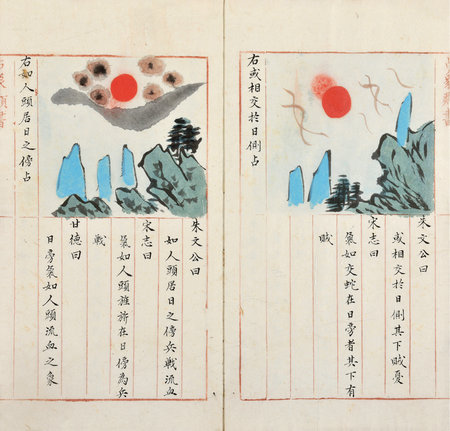 右或相交於日側占
朱文公曰
或相交於日側其下賊憂
宋志曰
氣如交蛇在日旁者其下有
賊
右如人頭居日之傍占
朱文公曰
如人頭居日之傍兵戰流血
宋志曰
氣如人頭在日傍為兵
戰
甘德曰
日旁氣如人頭流血之象